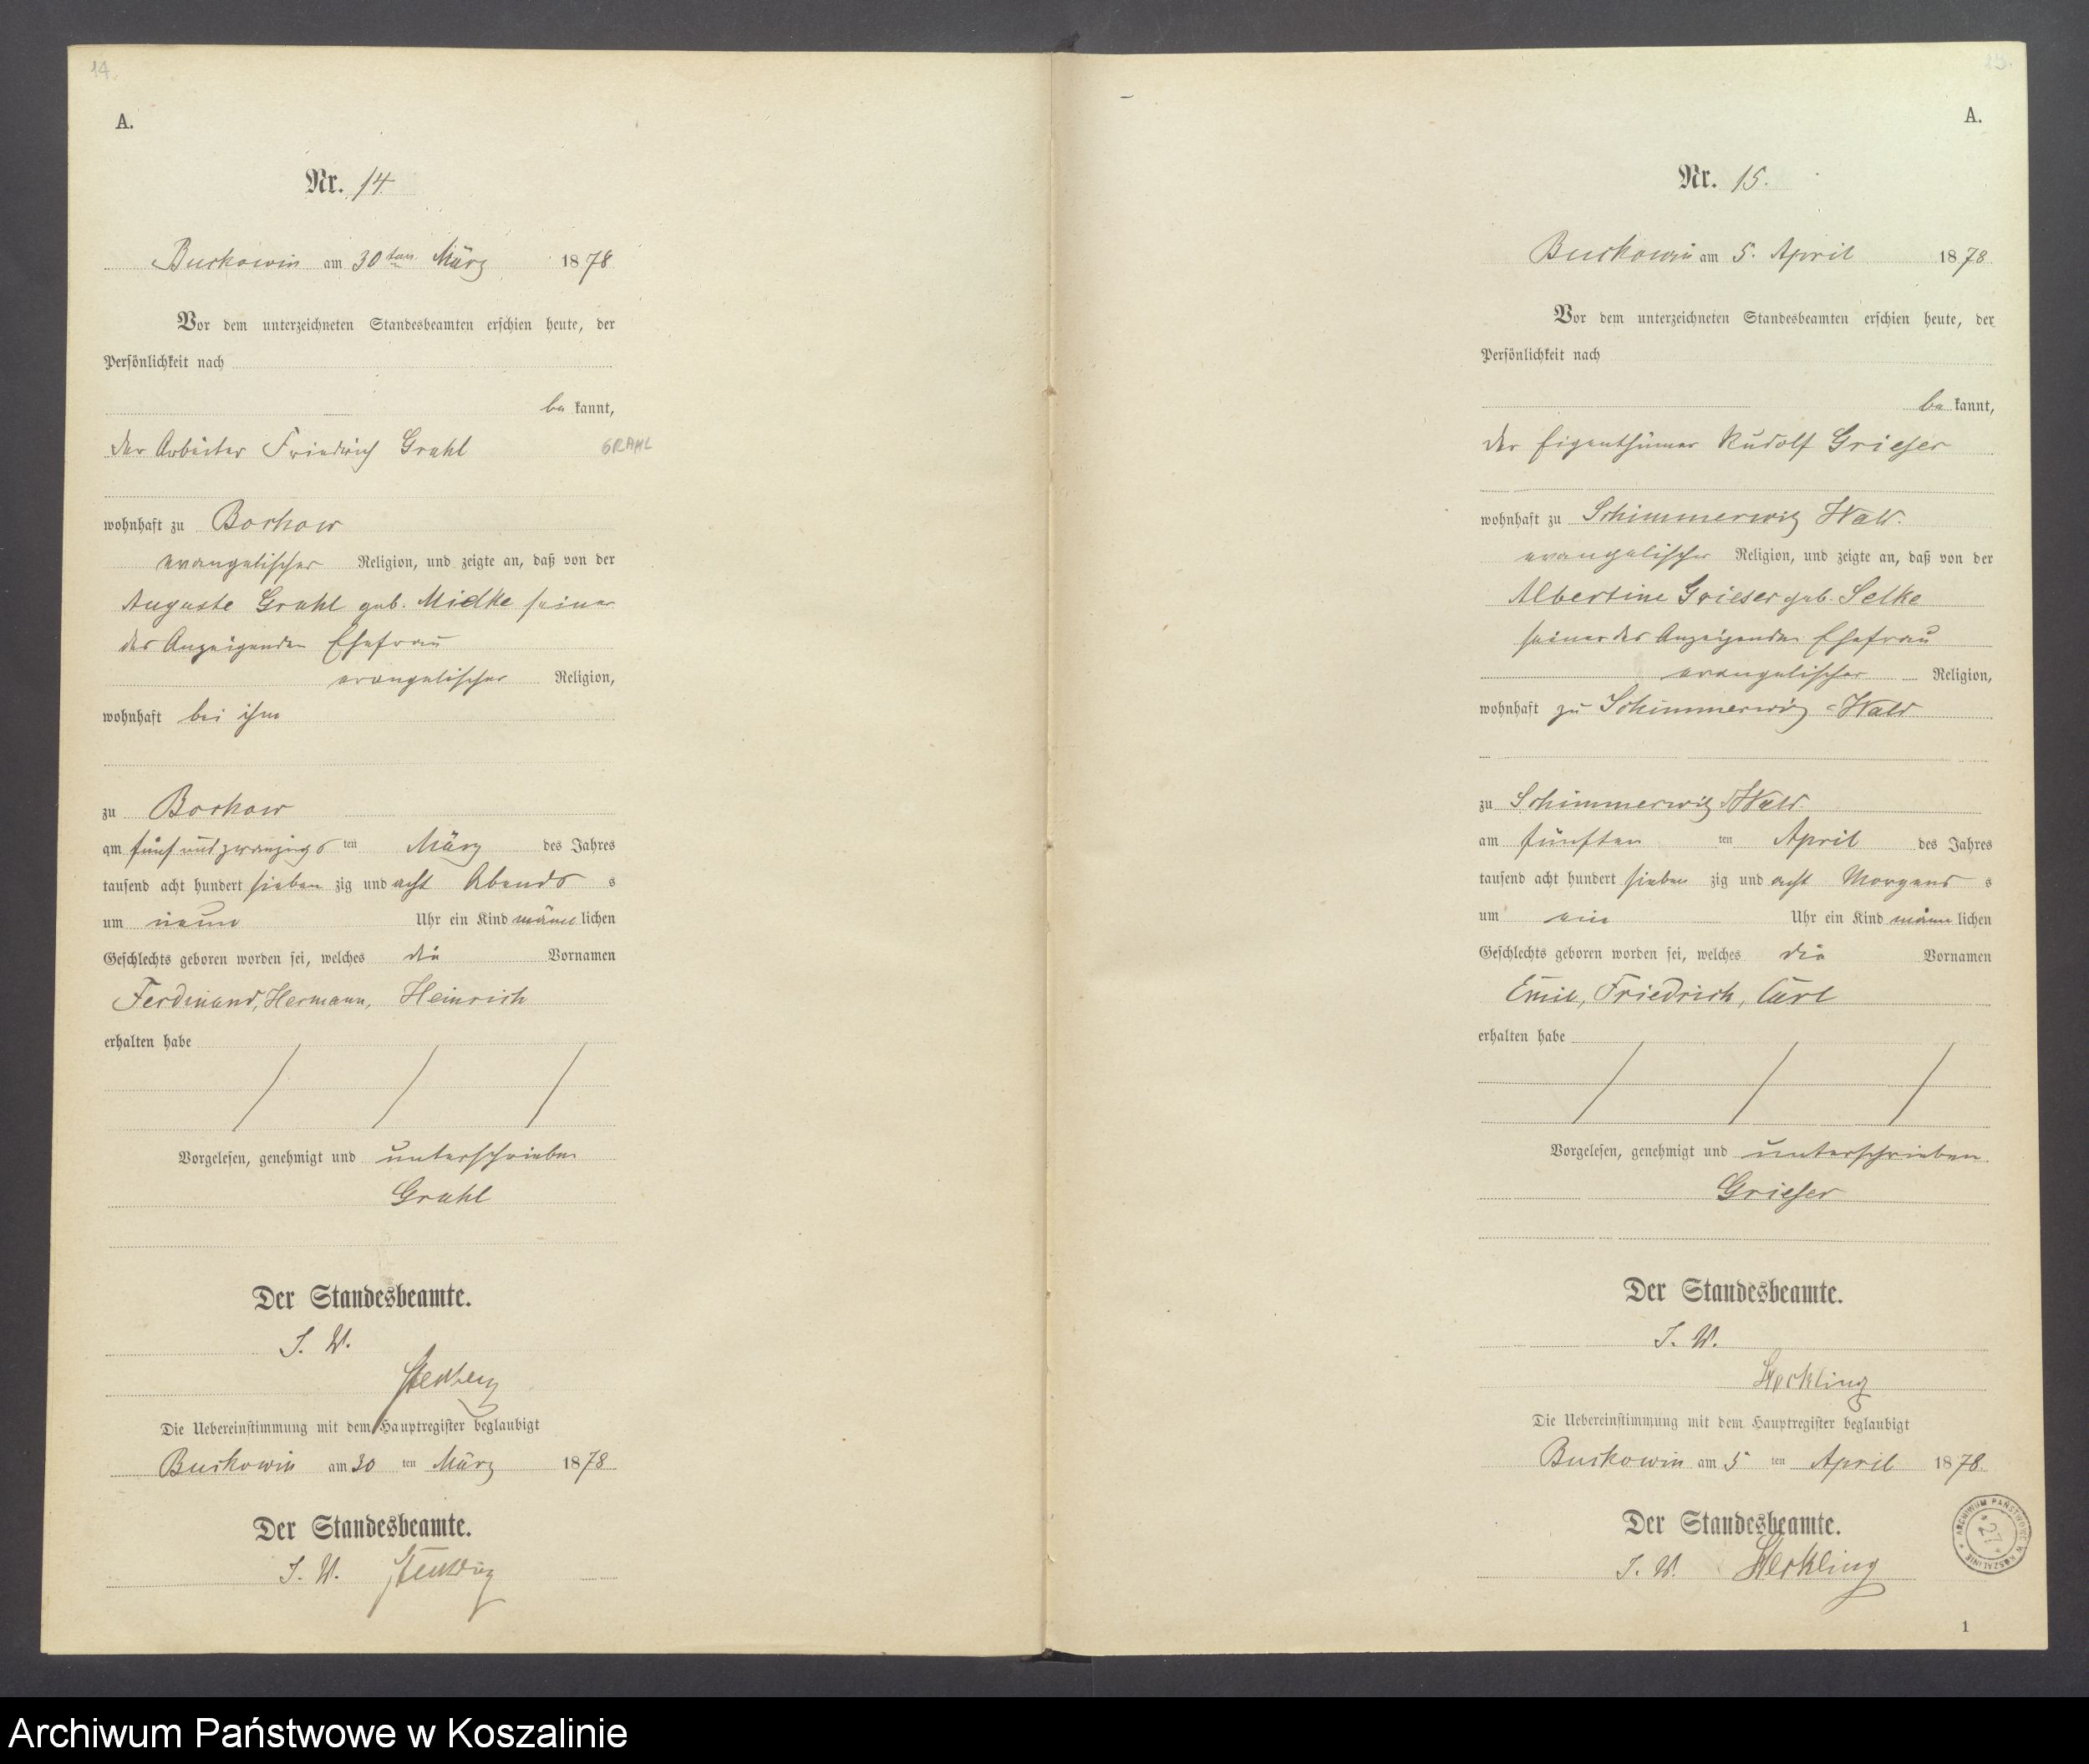 14.
A.
Nr. 14
Buckowin am 30ten März 1878
Vor dem unterzeichneten Standesbeamten erschien heute, der
Persönlichkeit nach
be kannt,
der Arbeiter Friedrich Grahl
GRAHL
wohnhaft zu Borkow
evangelischer Religion, und zeigte an, daß von der
Auguste Grahl geb. Midke seiner
des Anzeigenden Ehefrau
evangelischer Religion,
wohnhaft bei ihm
zu Borkow
am fünf und zwanzigs ten März des Jahres
tausend acht hundert sieben zig und acht Abends s
um neun Uhr ein Kind männ lichen
Geschlechts geboren worden sei, welches die Vornamen
Ferdinand, Hermann, Heinrich
erhalten habe
Vorgelesen, genehmigt und unterschrieben
Grahl
Der Standesbeamte.
J. V.
Die Uebereinstimmung mit dem Hauptregister beglaubigt
Buckowin am 30 ten März 1878
Der Standesbeamte.
J. V.
15.
A.
Nr. 15.
Buckowin am 5. April 1878
Vor dem unterzeichneten Standesbeamten erschien heute, der
Persönlichkeit nach
be kannt,
der Eigenthümer Rudolf Grieser
wohnhaft zu Schimmerwitz Wald.
evangelischer Religion, und zeigte an, daß von der
Albertine Grieser geb. Selke
seiner des Anzeigenden Ehefrau
evangelischer Religion,
wohnhaft zu Schimmerwitz-Wald
zu Schimmerwitz Wald
am fünften ten April des Jahres
tausend acht hundert sieben zig und acht Morgens s
um ein Uhr ein Kind männ lichen
Geschlechts geboren worden sei, welches die Vornamen
Emil, Friedrich, Carl
erhalten habe
Vorgelesen, genehmigt und unterschrieben.
Grieser
Der Standesbeamte.
J. V.
Die Uebereinstimmung mit dem Hauptregister beglaubigt
Buckowin am 5 ten April 1878.
Der Standesbeamte.
J. V.
ARCHIWUM PAŃSTWOWE W KOSZALINIE
*27*
1
Archiwum Państwowe w Koszalinie